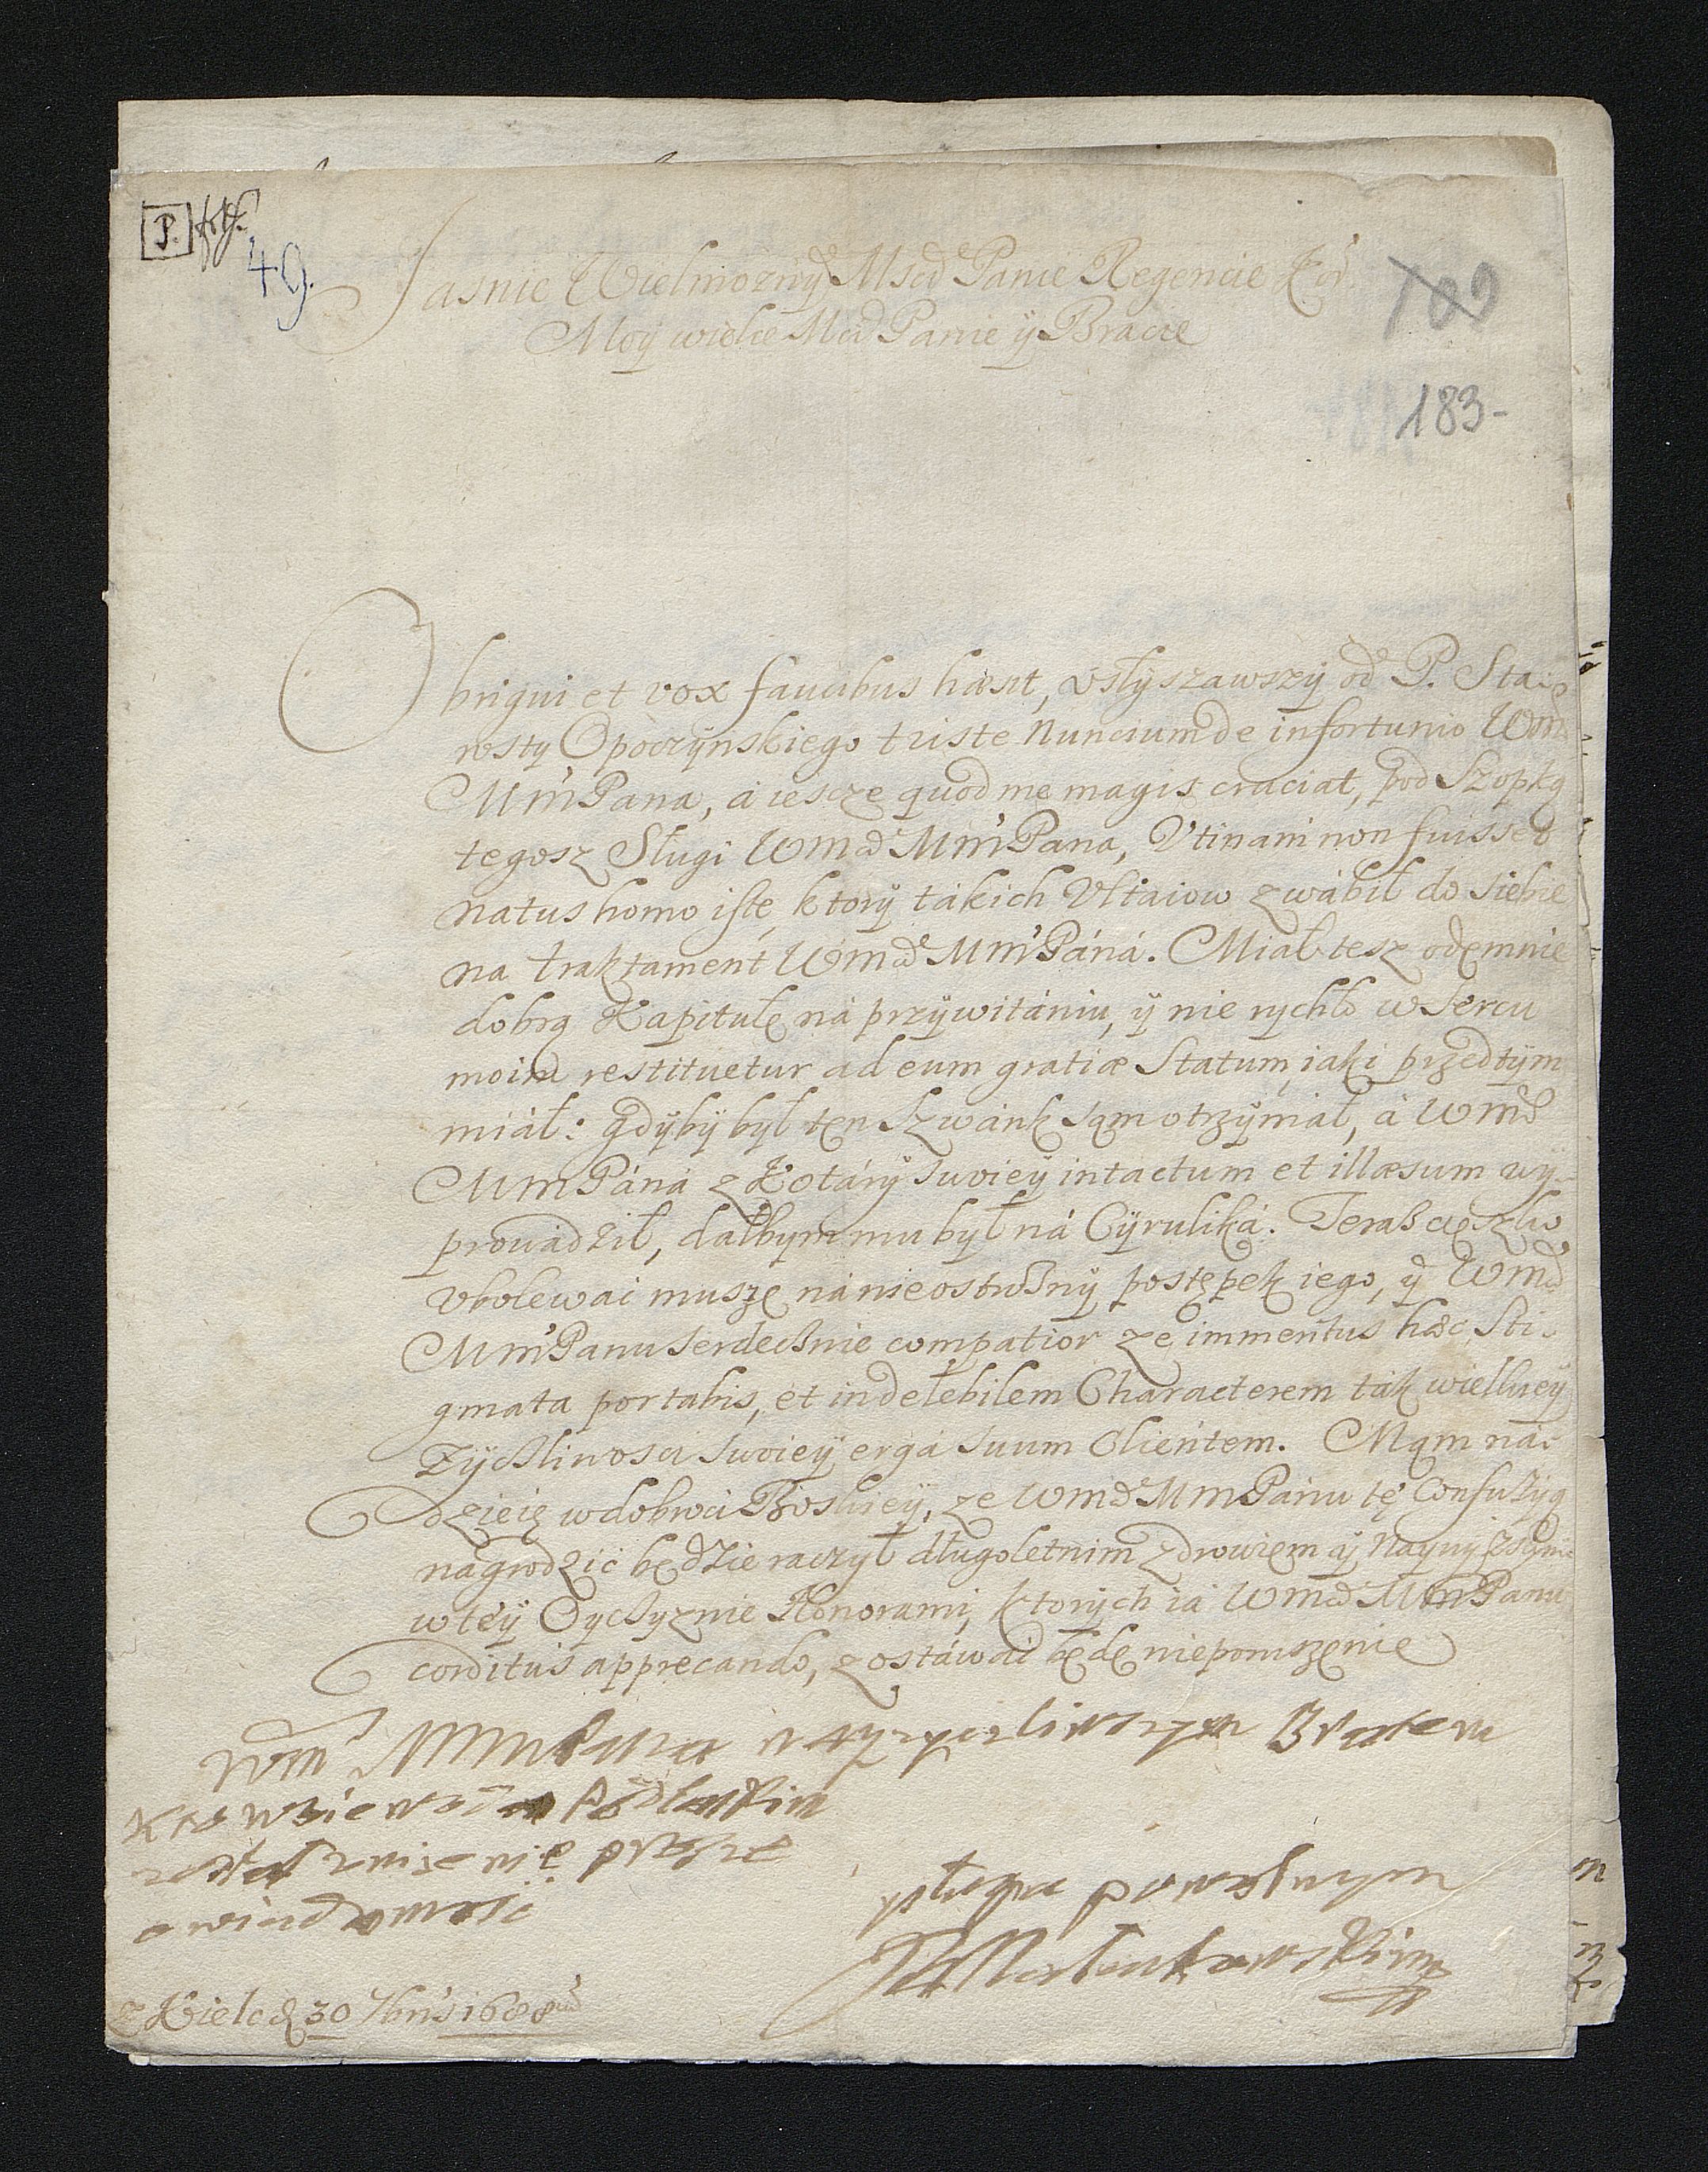 P. 49.
Jasnie Wielmozny Mscd Panie Regencie Kor
Moÿ wielce Mcd Panie ÿ Bracie
189
183-
Obrigui et vox faucibus hæsit, usłyszawszÿ od P. Sta-
rosty Opoczÿnskiego triste Nuncium de infortunio Wm
Mm Pana, á iescze quod me magis craciat, pod Szopką
tegosz Sługi Wmcd Mm Pana, Utinam non fuisset
natus homo iste, ktorÿ tákich Ultaiow zwábił do siebie
na traktáment Wmcd Mm Páná. Miał tesz odemnie
dobrą Kapitułę ná przÿwitániu, ÿ nie rychło w Sercu
moim restituetur ad eum gratiæ Statum, iaki przedtÿm
miáł: gdÿbÿ był ten Szwánk sąm otrzÿmał, á Wmcd
Mm Páná z Kotárÿ swoieÿ intactum et illæsum wÿ-
prowádźił, dałbym mu był ná Cÿruliká. Teraß cięszko
ubolewać muszę ná nieostrożnÿ postępek iego, ÿ Wmcd
Mm Panu Serdecßnie compatior ze immeritus hæc Sti-
gmata portabis, et indelebilem Characterem ták wielkieÿ
Zÿcßliwosci swoieÿ erga suum Clientem. Mąm ná-
dzieię w dobroci Boskieÿ, ze Wmcd Mm Pánu tę Confuzÿą
nagrodzić będźie raczÿł długoletnim zdrowiem ÿ Naywÿzszÿmi
w teÿ Oycßyznie Honorami, ktorÿch iá Wmcd Mm Panu
corditus apprecando, zostáwáć będę nieporuszęnie
Wm MmPana nayzyczliwszym Bratem
Kto wziewodą Podlaskim
został uniżenie proszę
o wiadomość
y sługą powolnym
JMałachowskim
z Kielc d 30 7bris 1688